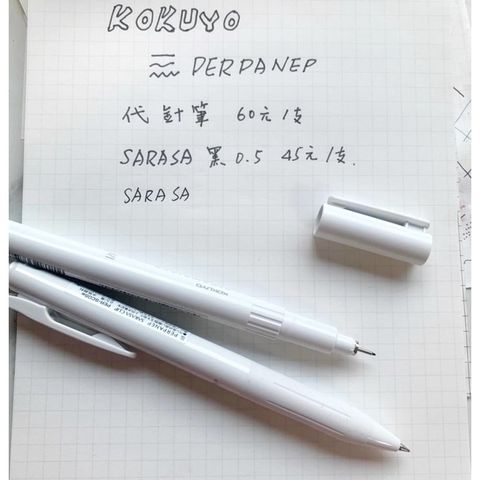 KOKUYO
PERPANEP
代針筆 60元/支
SARASA 黑 0.5 45元/支.
SARASA
KOKUYO
PERPANEP SARASA CLIP